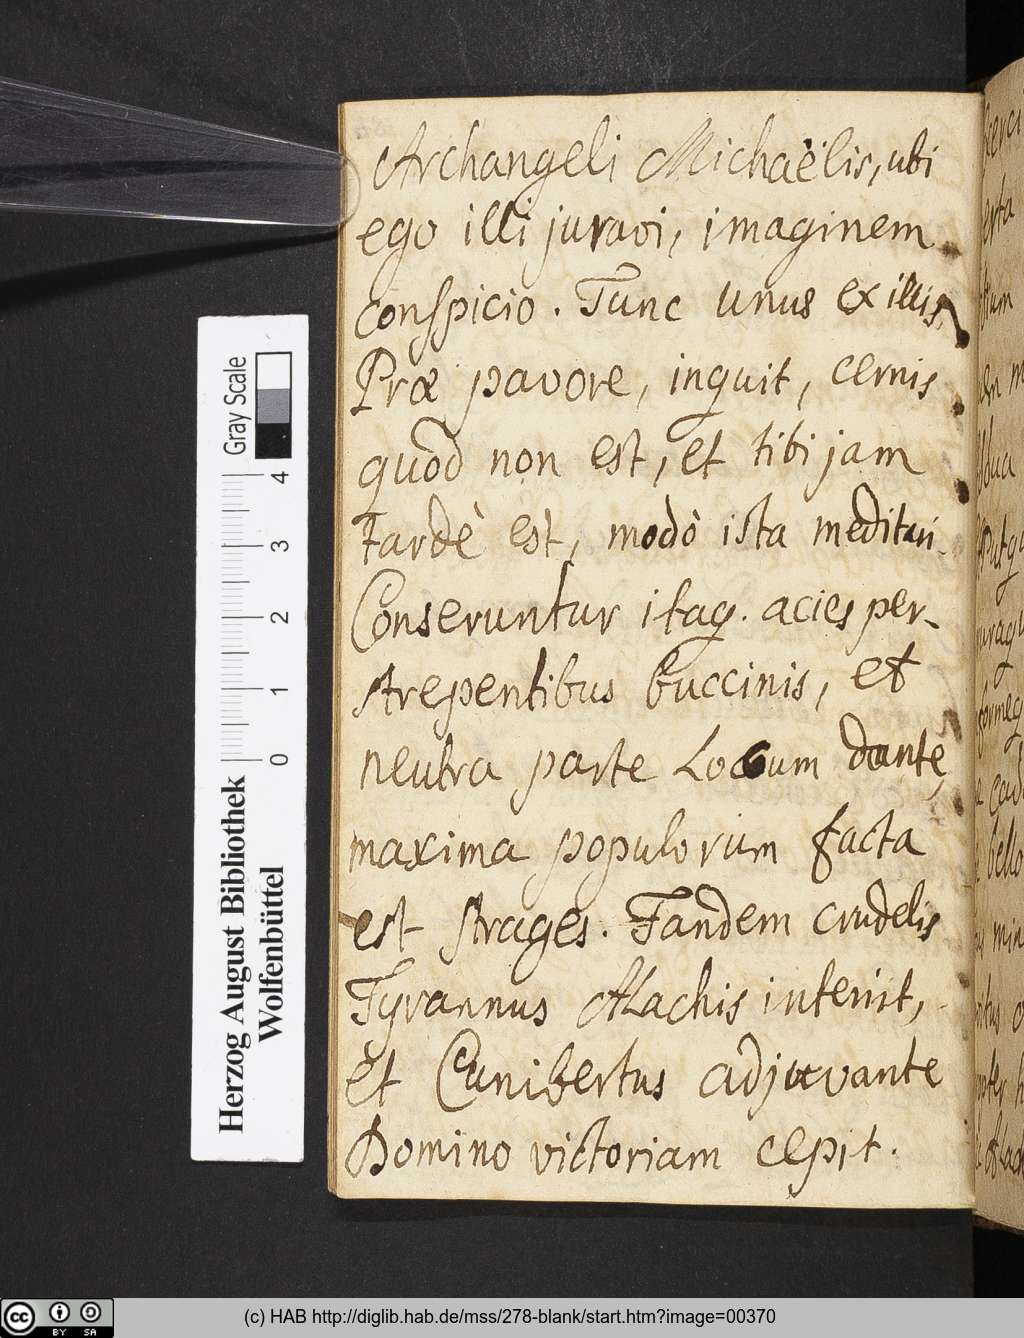 Archangeli Michaëlis, ubi
ego illi juravi, imaginem
conspicio. Tunc unus ex illis,
Præ pavore, inquit, cernis
quod non est, et tibi jam
tardè est, modò ista meditari.
Conseruntur itaq. acies per-
strepentibus buccinis, et
neutra parte Locum dante,
maxima populorum facta
est strages. Tandem crudelis
Tyrannus Alachis interiit,
et Cunibertus adjuvante
Domino victoriam cepit.
Herzog August Bibliothek
Wolfenbüttel
Gray Scale
0 1 2 3 4
(c) HAB http://diglib.hab.de/mss/278-blank/start.htm?image=00370
cc BY SA